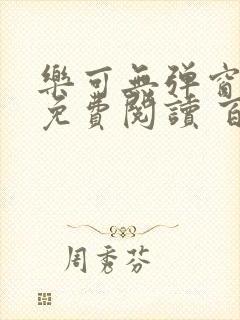 樂可無弹窗
免費閱讀 百
周秀芬